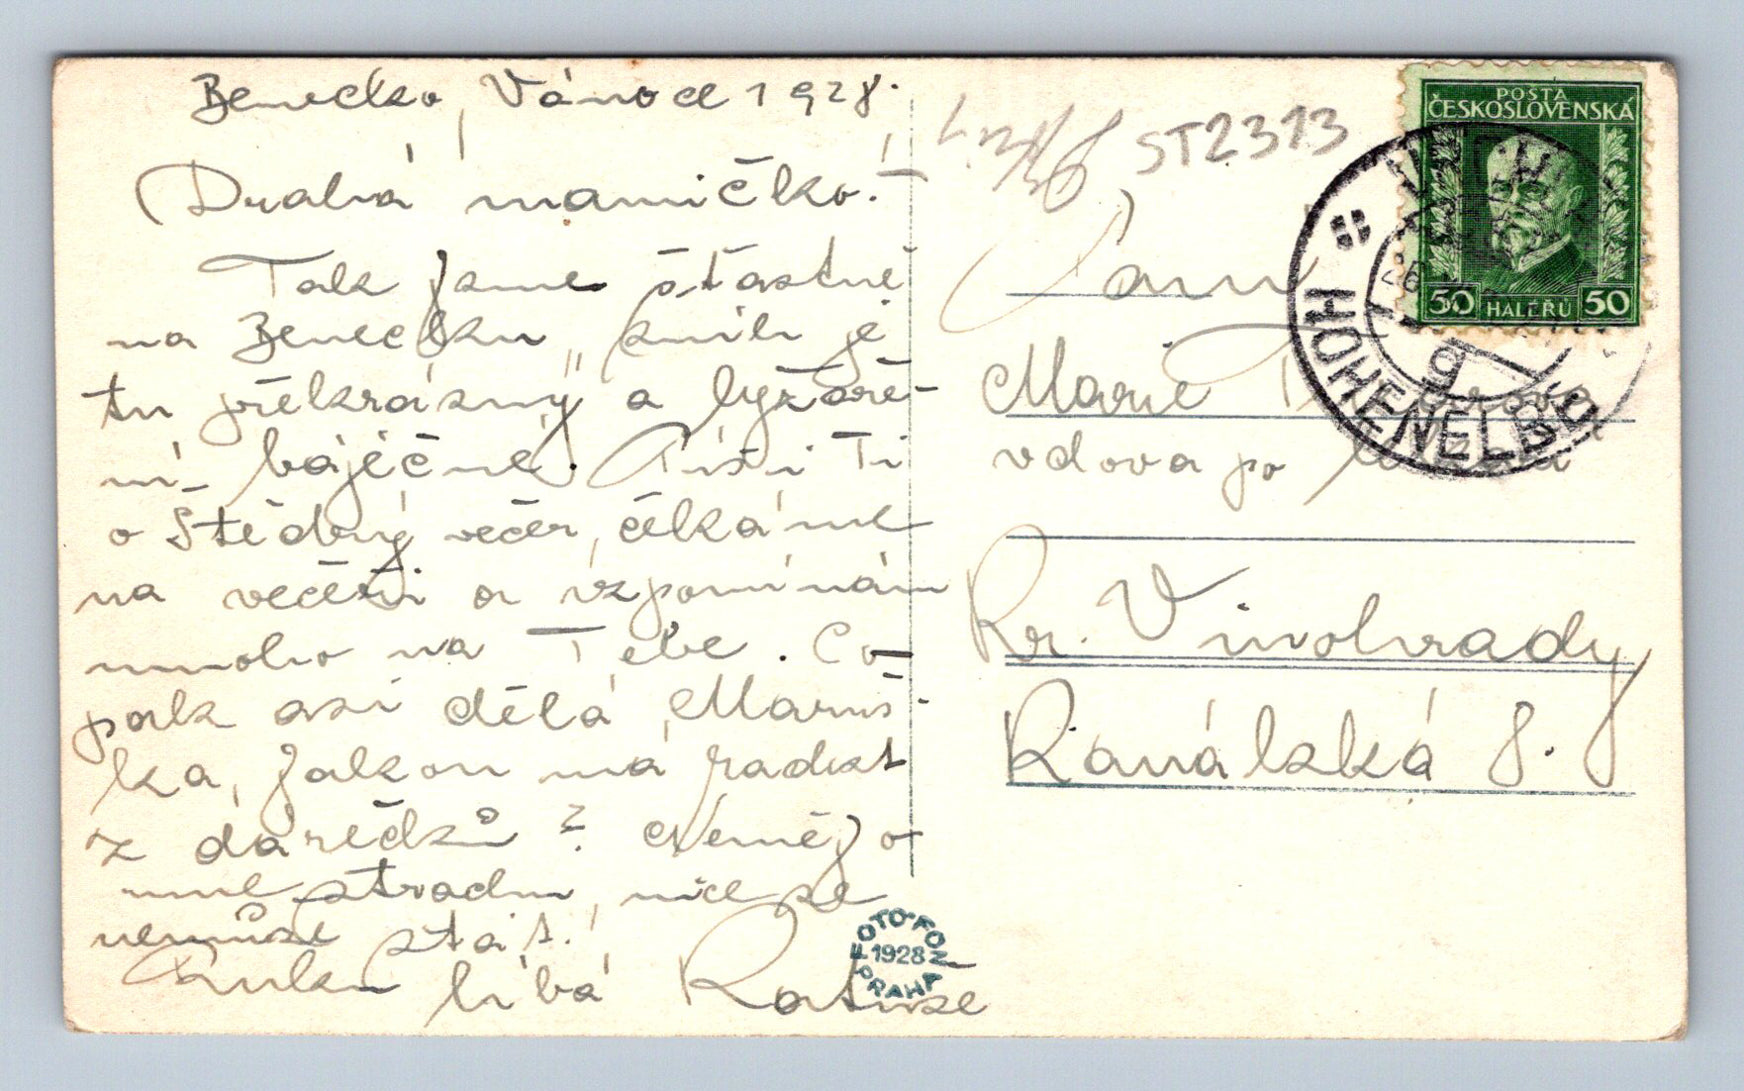 Benecko, Vánoce 1928.
Drahá mamičko!
Tak jsme šťastně
na Benecku, sníh je
tu překrásný a lyžaře-
ní báječné. Píši Ti
o Štědrý večer, čekáme
na večeři a vzpomínám
mnoho na Tebe. Co-
pak asi dělá Maruš-
ka, jakou má radost
z dárečků? Neměj o
mne strach, nic se
nemůže stát!
Ruku líbá
ST2313
POSTA
ČESKOSLOVENSKÁ
50 HALÉŘŮ 50
HOHENELBE
Paní
Marie
vdova po
Kr. Vinohrady
Kanálská 8.
FOTO-FON
1928
PRAHA